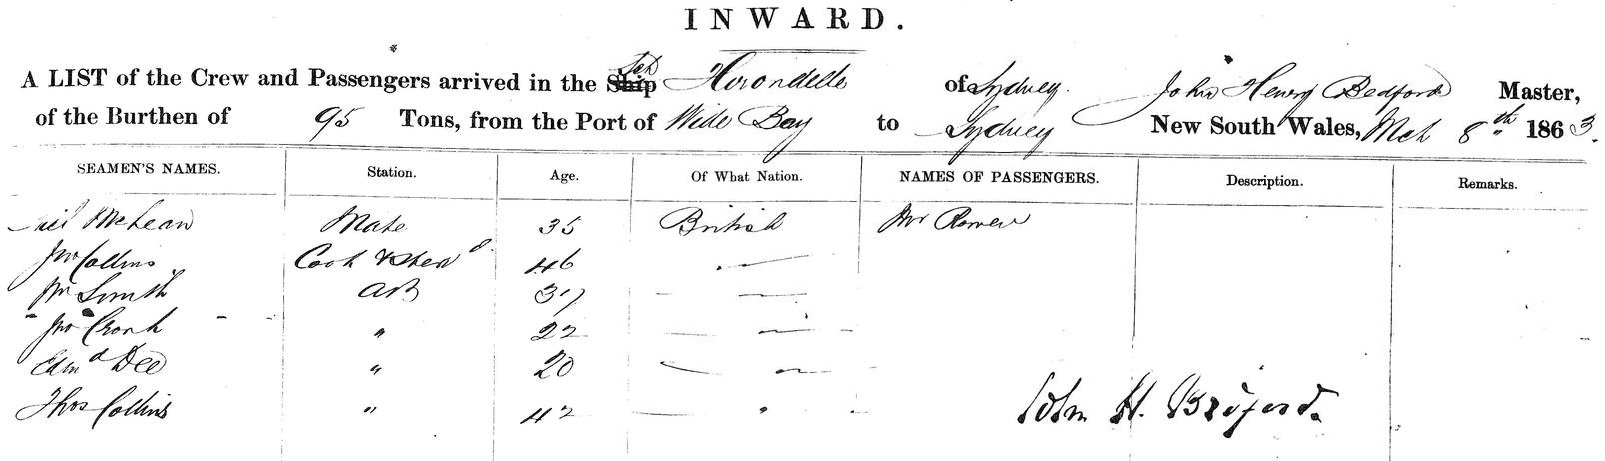 INWARD.
A LIST of the Crew and Passengers arrived in the Ship Sch Hirondelle of Sydney. John Henry Bedford Master,
of the Burthen of 95 Tons, from the Port of Wide Bay to Sydney New South Wales, Mch 8th 1863.
SEAMEN'S NAMES. Station. Age. Of What Nation. NAMES OF PASSENGERS. Description. Remarks.
Neil McLean Mate 35 British Mr
Jno Collins Cook & Stewd 46 —
Smith AB 37 — —
Jno Cronk " 22 — —
Edmd Dee " 20 — —
Thos Collins " 42 — "
John H. Bedford.